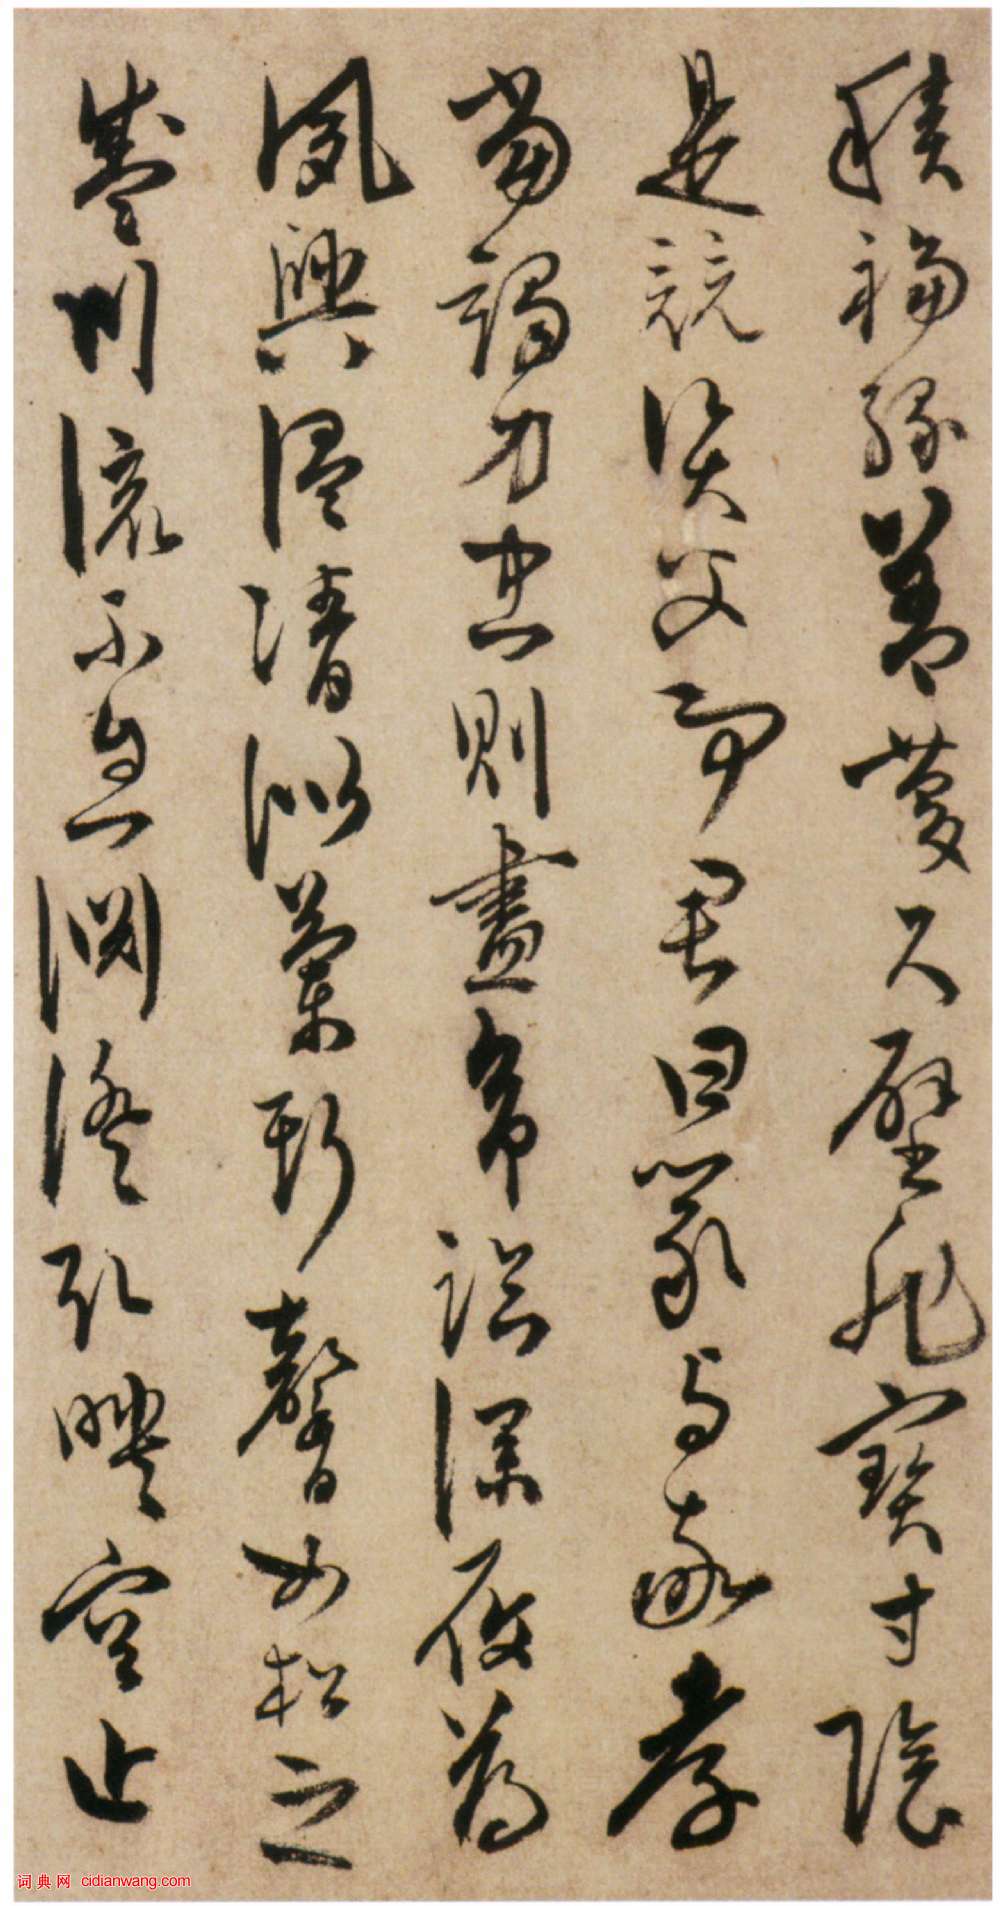 積福緣善慶尺璧非寶寸陰
是競資父事君曰嚴與敬孝
當竭力忠則盡命臨深履薄
夙興溫清似蘭斯馨如松之
盛川流不息淵澄取暎容止
词典网 cidianwang.com